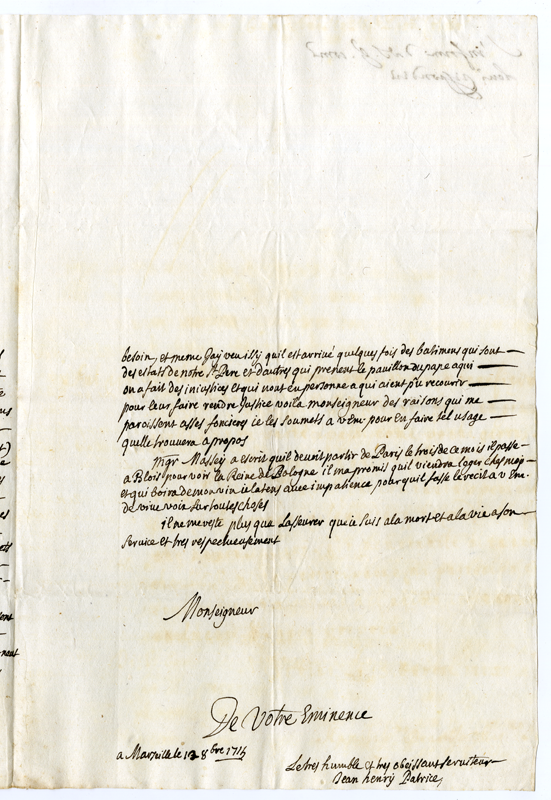 besoin, et meme Jay veu illy quil est arrivé quelques fois des batimens qui sont
des estats de notre St Pere et dautres qui prenent le pavillon du pape aqui
on a fait des iniustices et qui nont eu personne a qui aient pu recourir
pour leur faire rendre Justice voila monseigneur des raisons qui me
paroissent asses foncieres ie les soumets a v em. pour en faire tel usage
quelle trouvera a propos
Mgr Massey a escrit quil devoit partir de Paris le trois de ce mois il passe
a Blois pour voir la Reine de Pologne il ma promis quil viendra loger chez moy
et qui boira de mon vin ie latens avec impatience pour quil fasse le recit a v Em.
de vive voix sur toutes choses
il ne me reste plus que Lasseurer que ie suis a la mort et a la vie a son
service et tres respectueusement
Monseigneur
De Votre Eminence
a Marseille le 13 8bre 1714
Le tres humble & tres obeissant serviteur
Jean henry Patrice